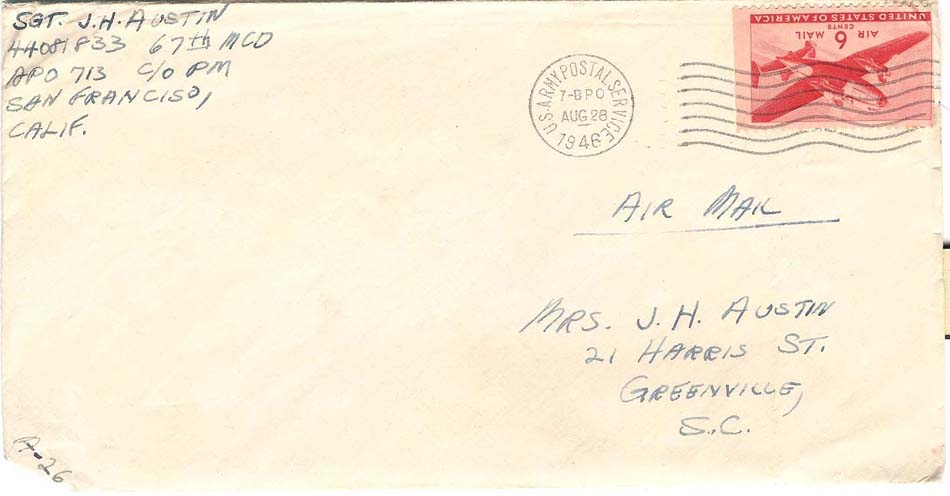 SGT. J.H. AUSTIN
44081833 67th MCD
APO 713 C/O PM
SAN FRANCISO,
CALIF.
U.S. ARMY POSTAL SERVICE
7-BPO
AUG 28
1946
UNITED STATES OF AMERICA
AIR 6 MAIL
CENTS
AIR MAIL
MRS. J.H. AUSTIN
21 HARRIS ST.
GREENVILLE,
S.C.
A-26